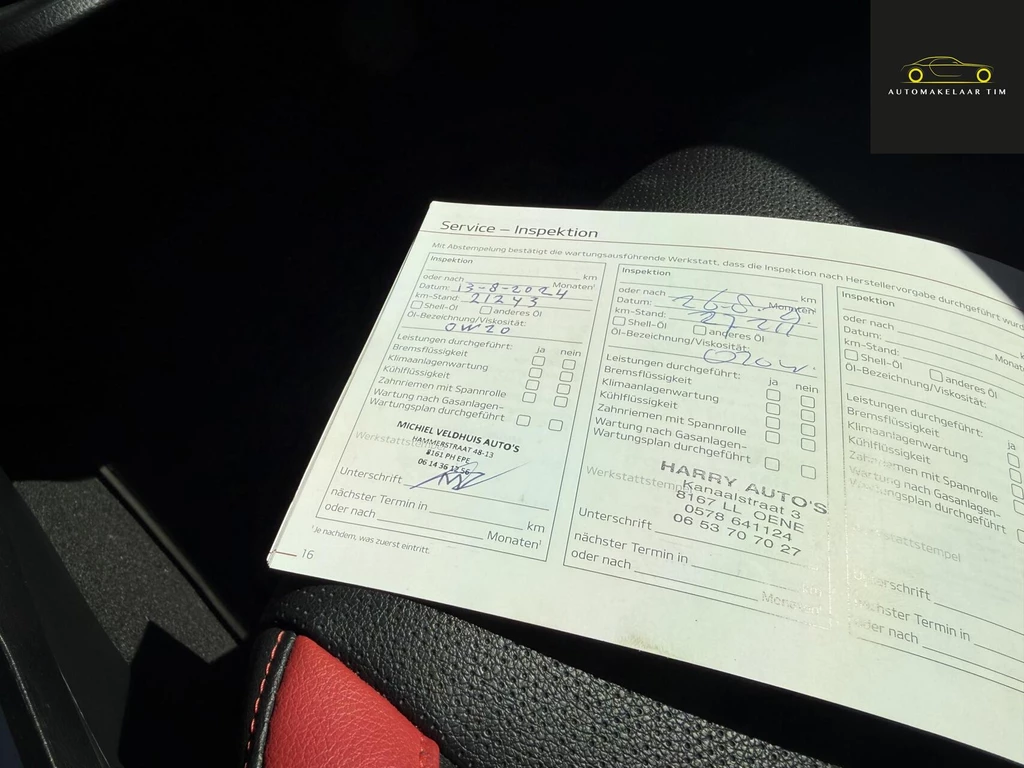 AUTOMAKELAAR TIM
Service – Inspektion
Mit Abstempelung bestätigt die wartungsausführende Werkstatt, dass die Inspektion nach Herstellervorgabe durchgeführt wurd
Inspektion
km
oder nach Monaten¹
Datum: 13-8-2024
km-Stand: 21243
Shell-Öl anderes Öl
Öl-Bezeichnung/Viskosität:
0W20
Leistungen durchgeführt: ja nein
Bremsflüssigkeit
Klimaanlagenwartung
Kühlflüssigkeit
Zahnriemen mit Spannrolle
Wartung nach Gasanlagen-
Wartungsplan durchgeführt
MICHIEL VELDHUIS AUTO'S
HAMMERSTRAAT 48-13
8161 PH EPE
06 14 36 12 56
Werkstattstempel
Unterschrift
nächster Termin in km
oder nach Monaten¹
¹Je nachdem, was zuerst eintritt.
16
Inspektion
km
oder nach Monaten¹
Datum:
km-Stand:
Shell-Öl anderes Öl
Öl-Bezeichnung/Viskosität:
Leistungen durchgeführt: ja nein
Bremsflüssigkeit
Klimaanlagenwartung
Kühlflüssigkeit
Zahnriemen mit Spannrolle
Wartung nach Gasanlagen-
Wartungsplan durchgeführt
HARRY AUTO'S
Kanaalstraat 3
8167 LL OENE
0578 641124
06 53 70 70 27
Werkstattstempel
Unterschrift
nächster Termin in
oder nach Monaten¹
Inspektion
oder nach Monate
Datum:
km-Stand:
Shell-Öl anderes Öl
Öl-Bezeichnung/Viskosität:
Leistungen durchgeführt: ja
Bremsflüssigkeit
Klimaanlagenwartung
Kühlflüssigkeit
Zahnriemen mit Spannrolle
Wartung nach Gasanlagen-
Wartungsplan durchgeführt
Werkstattstempel
Unterschrift
nächster Termin in
oder nach